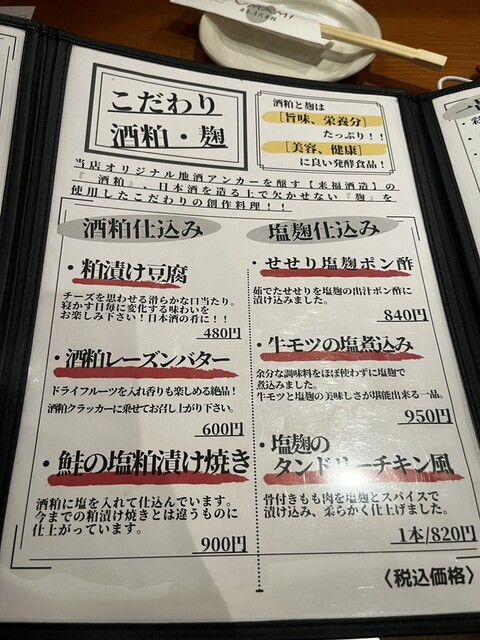 こだわり
酒粕・麹
酒粕と麹は
[旨味、栄養分]
たっぷり！！
[美容、健康]
に良い発酵食品！
当店オリジナル地酒アンカーを醸す【来福酒造】の
『酒粕』、日本酒を造る上で欠かせない『麹』を
使用したこだわりの創作料理！！
酒粕仕込み
・粕漬け豆腐
チーズを思わせる滑らかな口当たり。
寝かす日毎に変化する味わいを
お楽しみ下さい！日本酒の肴に！！
480円
・酒粕レーズンバター
ドライフルーツを入れ香りも楽しめる絶品！
酒粕クラッカーに乗せてお召し上がり下さい。
600円
・鮭の塩粕漬け焼き
酒粕に塩を入れて仕込んでいます。
今までの粕漬け焼きとは違うものに
仕上がっています。
900円
塩麹仕込み
・せせり塩麹ポン酢
茹でたせせりを塩麹の出汁ポン酢に
漬け込みました。
840円
・牛モツの塩煮込み
余分な調味料をほぼ使わずに塩麹で
煮込みました。
牛モツと塩麹の美味しさが堪能出来る一品。
950円
・塩麹の
タンドリーチキン風
骨付きもも肉を塩麹とスパイスで
漬け込み、柔らかく仕上げました。
1本/820円
〈税込価格〉